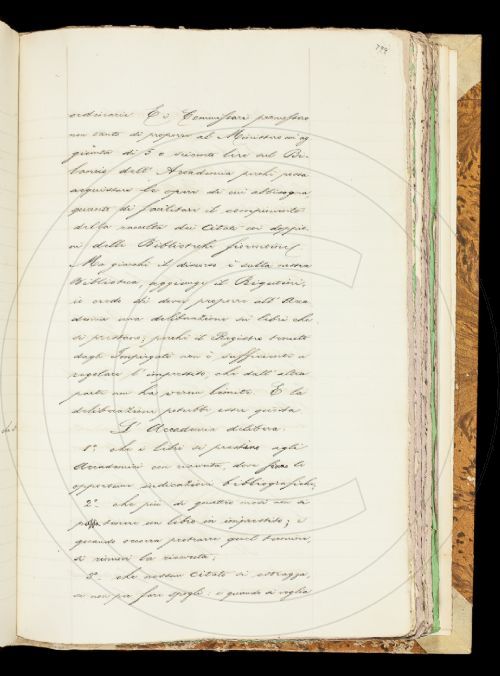 799
ordinario. E i Commissari pensassero
non tanto di proporre al Ministero un'ag
giunta di 5 o seicento lire sul Bi-
lancio dell'Accademia perchè possa
acquistare le opere di cui abbisogna,
quanto di facilitare il compimento
della raccolta dei Citati coi doppi
delle Biblioteche fiorentine.
Ma giacchè il discorso è sulla nostra
Biblioteca, aggiunge il Rigutini,
io credo di dover proporre all'Acca
demia una deliberazione sui libri che
si prestano; perchè il Registro tenuto
dagli Impiegati non è sufficiente a
regolare l'imprestito, che dall'altra
parte non ha verun limite. E la
deliberazione potrebbe esser questa.
L'Accademia delibera:
1.° che i libri si prestino agli
Accademici con ricevuta, dove siano le
opportune indicazioni bibliografiche;
2.° che più di quattro mesi non si
possa tenere un libro in imprestito; e
quando occorra protrarre quel termine,
si rinnovi la ricevuta;
3.° che nessun Citato si estragga,
se non per fare spogli; e quando si voglia